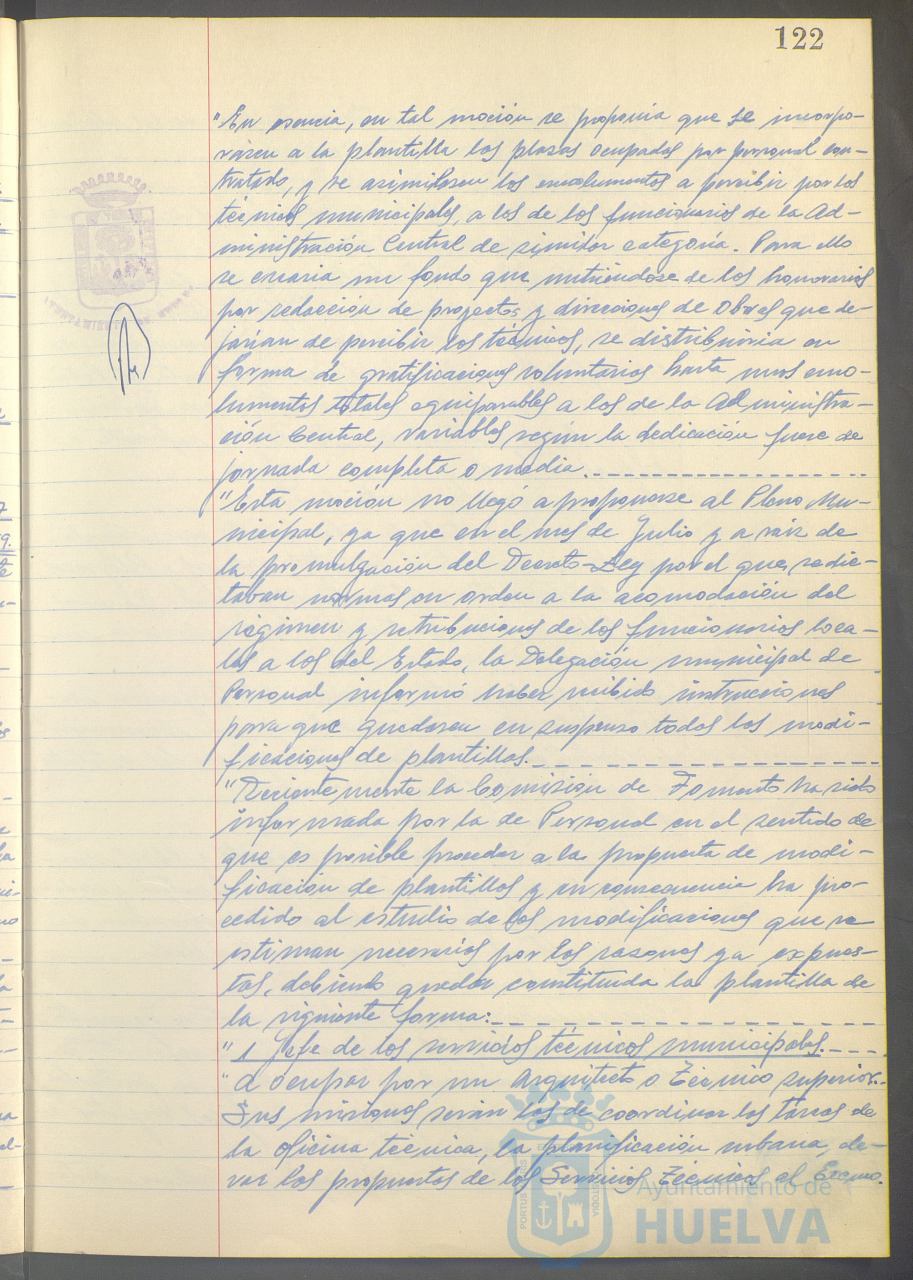 122
"En esencia, en tal moción se proponía que se incorpo-
rasen a la plantilla las plazas ocupadas por personal con-
tratado, y se asimilasen los emolumentos a percibir por los
técnicos municipales, a los de los funcionarios de la Ad-
ministración Central de similar categoría. Para ello
se crearia un fondo que nutriéndose de los honorarios
por redacción de proyectos y direcciones de Obras que de-
jarían de percibir los técnicos, se distribuiría en
forma de gratificaciones voluntarias hasta unos emo-
lumentos totales equiparables a los de la Administra-
ción Central, variables según la dedicación fuese de
jornada completa o media.
"Esta moción no llegó a proponerse al Pleno Mu-
nicipal, ya que en el mes de Julio y a raiz de
la promulgación del Decreto-Ley por el que se dic-
taban normas en orden a la acomodación del
régimen y retribuciones de los funcionarios loca-
les a los del Estado, la Delegación municipal de
Personal informó haber recibido instrucciones
para que quedasen en suspenso todas las modi-
ficaciones de plantillas.
"Recientemente la Comisión de Fomento ha sido
informada por la de Personal en el sentido de
que es posible proceder a la propuesta de modi-
ficación de plantillas y en consecuencia ha pro-
cedido al estudio de las modificaciones que se
estiman necesarias por las razones ya expues-
tas, debiendo quedar constituida la plantilla de
la siguiente forma:
"1 Jefe de los servicios técnicos municipales.
"a ocupar por un Arquitecto o Técnico superior.-
Sus misiones serán las de coordinar las tareas de
la oficina técnica, la planificación urbana, ele-
var las propuestas de los Servicios Técnicos al Excmo.
Ayuntamiento de
HUELVA